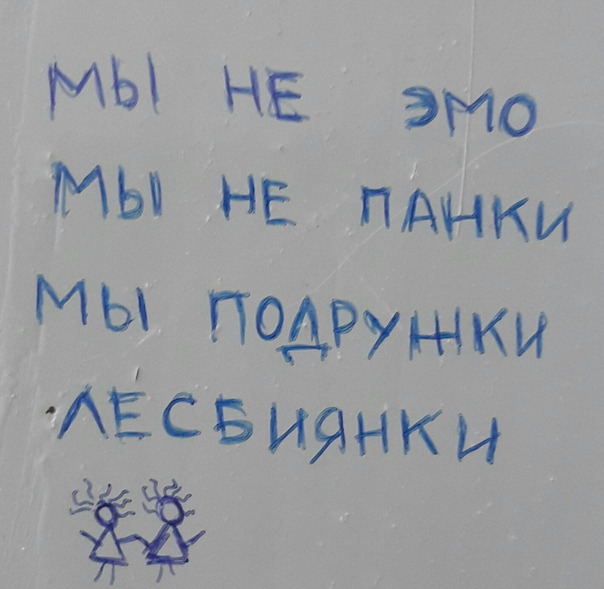 МЫ НЕ ЭМО
МЫ НЕ ПАНКИ
МЫ ПОДРУЖКИ
ЛЕСБИЯНКИ